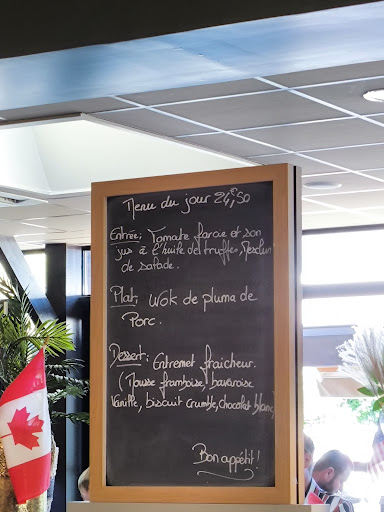 Menu du jour 24,€50
Entrée: Tomate farcie et son
jus à l'huile de truffes, Mesclun
de salade.
Plat: Wok de pluma de
Porc.
Dessert: Entremet fraicheur.
(Mousse framboise, bavaroise
Vanille, biscuit crumble, chocolat blanc)
Bon appétit!